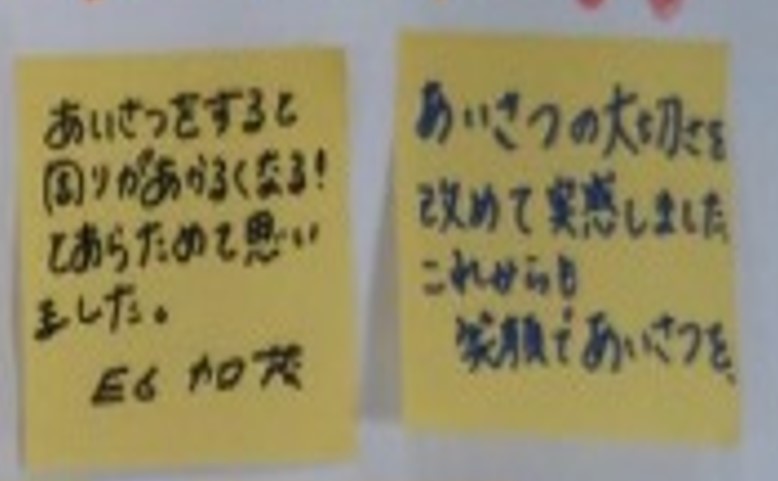 あいさつをすると
周りがあかるくなる!
とあらためて思い
ました。
E6 加茂
あいさつの大切さを
改めて実感しました。
これからも
笑顔であいさつを、